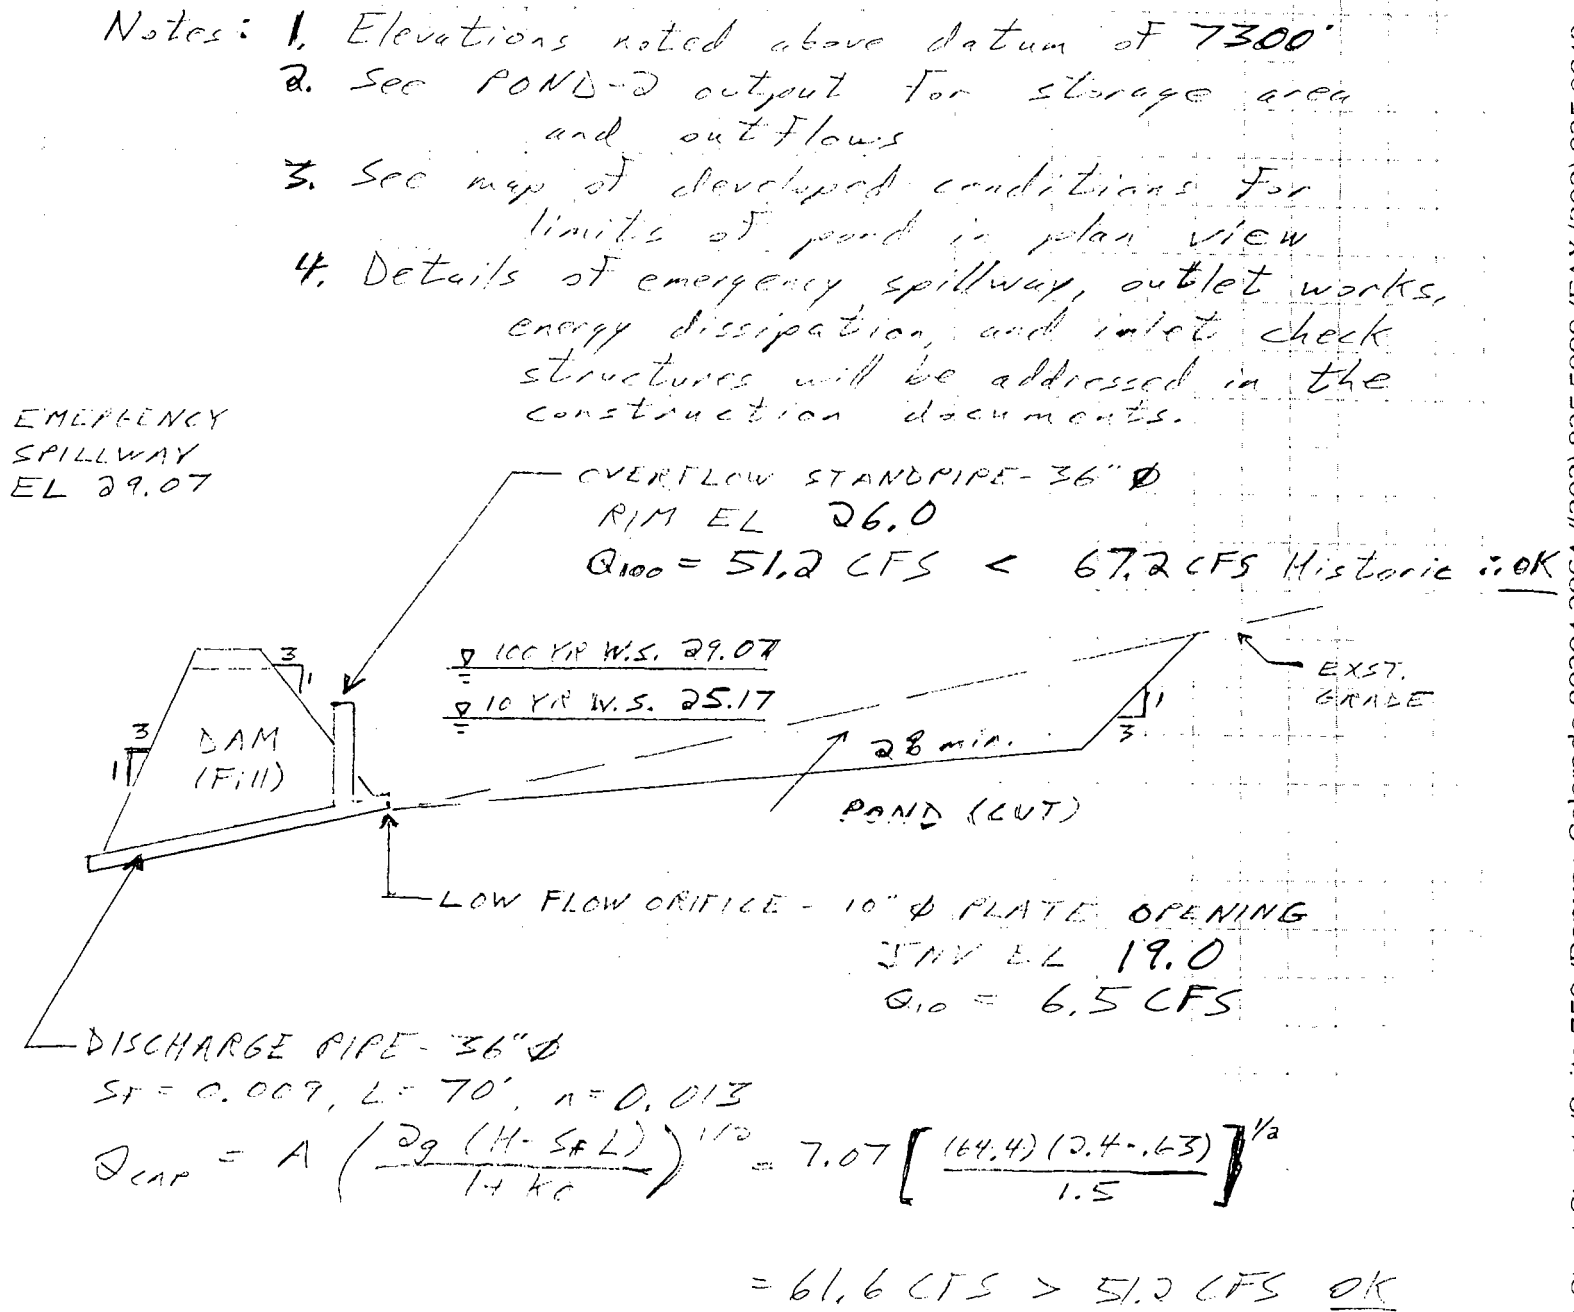 Notes: 1. Elevations noted above datum of 7300'
2. See POND-2 output for storage area
and outflows
3. See map of developed conditions for
limits of pond in plan view
4. Details of emergency spillway, outlet works,
energy dissipation, and inlet check
structures will be addressed in the
construction documents.
EMERGENCY
SPILLWAY
EL 29.07
OVERFLOW STANDPIPE - 36" Ø
RIM EL 26.0
Q100 = 51.2 CFS < 67.2 CFS Historic ∴ OK
100 YR W.S. 29.07
10 YR W.S. 25.17
3
1
3
1
DAM
(Fill)
2% min.
1
3
EXST.
GRADE
POND (CUT)
LOW FLOW ORIFICE - 10" Ø PLATE OPENING
INV EL 19.0
Q10 = 6.5 CFS
DISCHARGE PIPE - 36" Ø
Sf = 0.009, L = 70', n = 0.013
Qcap = A (2g (H - Sf L) / 1 + Ke)^1/2 = 7.07 [(64.4)(2.4 - .63) / 1.5]^1/2
= 61.6 CFS > 51.2 CFS OK